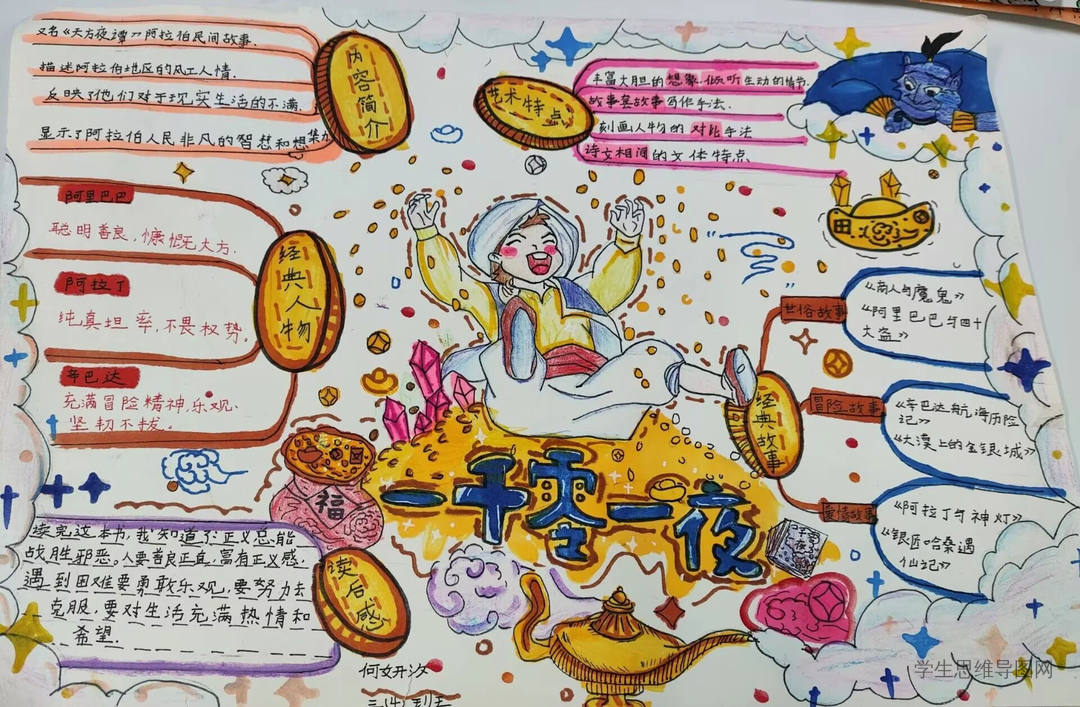 内容简介
又名《天方夜谭》阿拉伯民间故事.
描述阿拉伯地区的风工人情.
反映了他们对于现实生活的不满.
显示了阿拉伯人民非凡的智慧和想象力
艺术特点
丰富大胆的想象,倾听生动的情节.
故事套故事写作手法.
刻画人物的对比手法
诗文相间的文体特点
经典人物
阿里巴巴
聪明善良,慷慨大方.
阿拉丁
纯真坦率,不畏权势。
辛巴达
充满冒险精神,乐观.
坚韧不拔。
经典故事
世俗故事
《商人与魔鬼》
《阿里巴巴与四十
大盗》
冒险故事
《辛巴达航海历险
记》
《大漠上的金银城》
爱情故事
《阿拉丁与神灯》
《银匠哈桑遇
仙记》
福
一千零一夜
读后感
读完这本书,我知道了正义总能
战胜邪恶。人要善良正直,富有正义感.
遇到困难要勇敢乐观,要努力去
克服,要对生活充满热情和
希望.
何妍汐
三(4)班
学生思维导图网